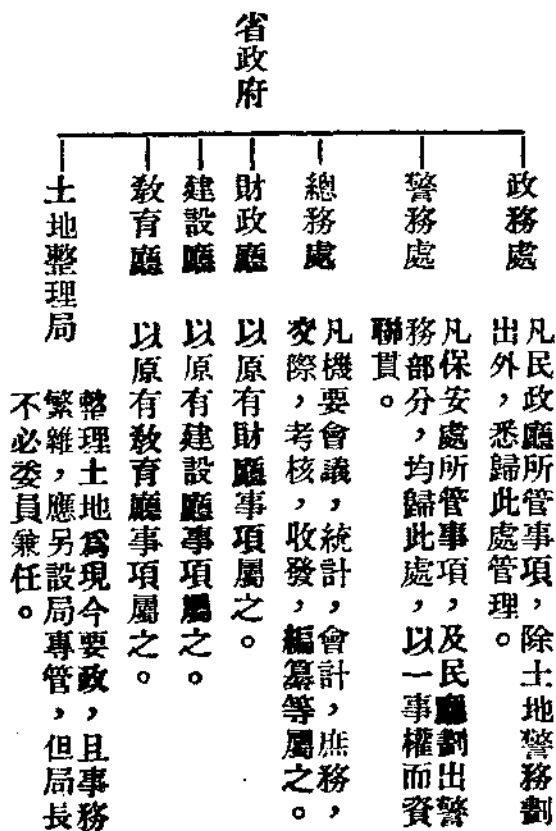 省政府
政務處
凡民政廳所管事項，除土地警務劃
出外，悉歸此處管理。
警務處
凡保安處所管事項，及民廳劃出警
務部分，均歸此處，以一事權而資
聯貫。
總務處
凡機要會議，統計，會計，庶務，
交際，考核，收發，編纂等屬之。
財政廳
以原有財廳事項屬之。
建設廳
以原有建設廳事項屬之。
教育廳
以原有教育廳事項屬之。
土地整理局
整理土地爲現今要政，且事務
繁雜，應另設局專管，但局長
不必委員兼任。